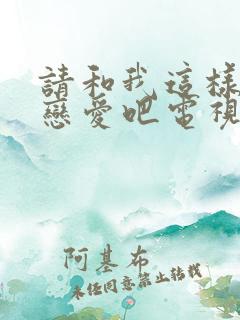 請和我這樣
戀愛吧電視
阿基布
未經同意禁止轉載